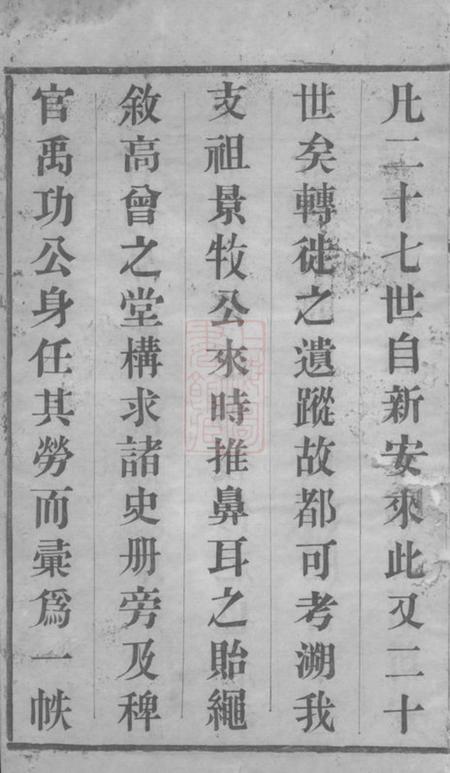 凡二十七世自新安來此又二十
世矣轉徙之遺蹤故都可考溯我
支祖景牧公來時推鼻耳之貽繩
敘高曾之堂構求諸史册旁及稗
官禹功公身任其勞而彙爲一帙